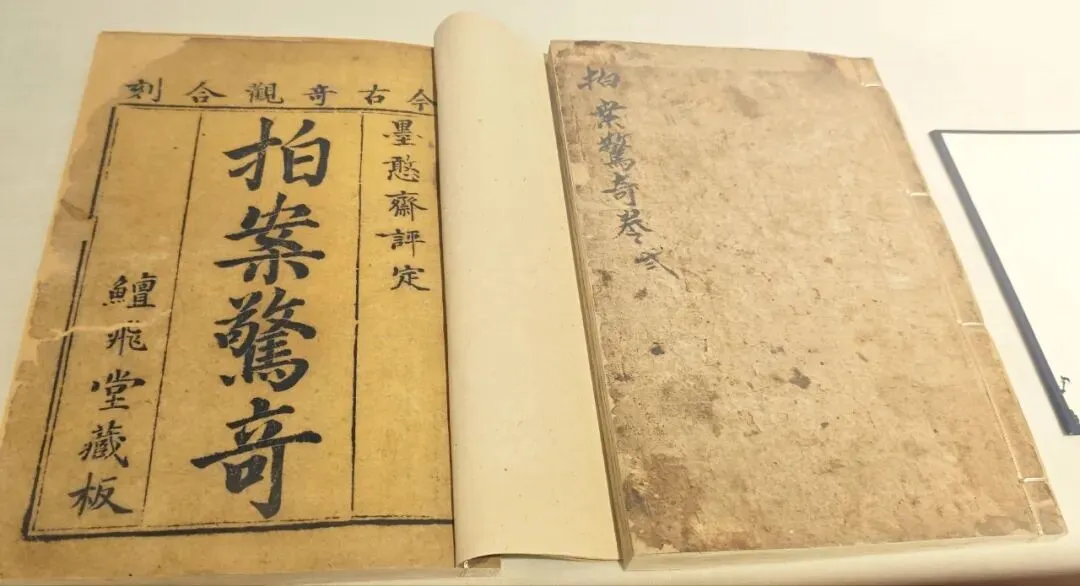 今古竒觀合刻
墨憨齋評定
拍案驚竒
鱣飛堂藏板
拍案驚奇卷弍